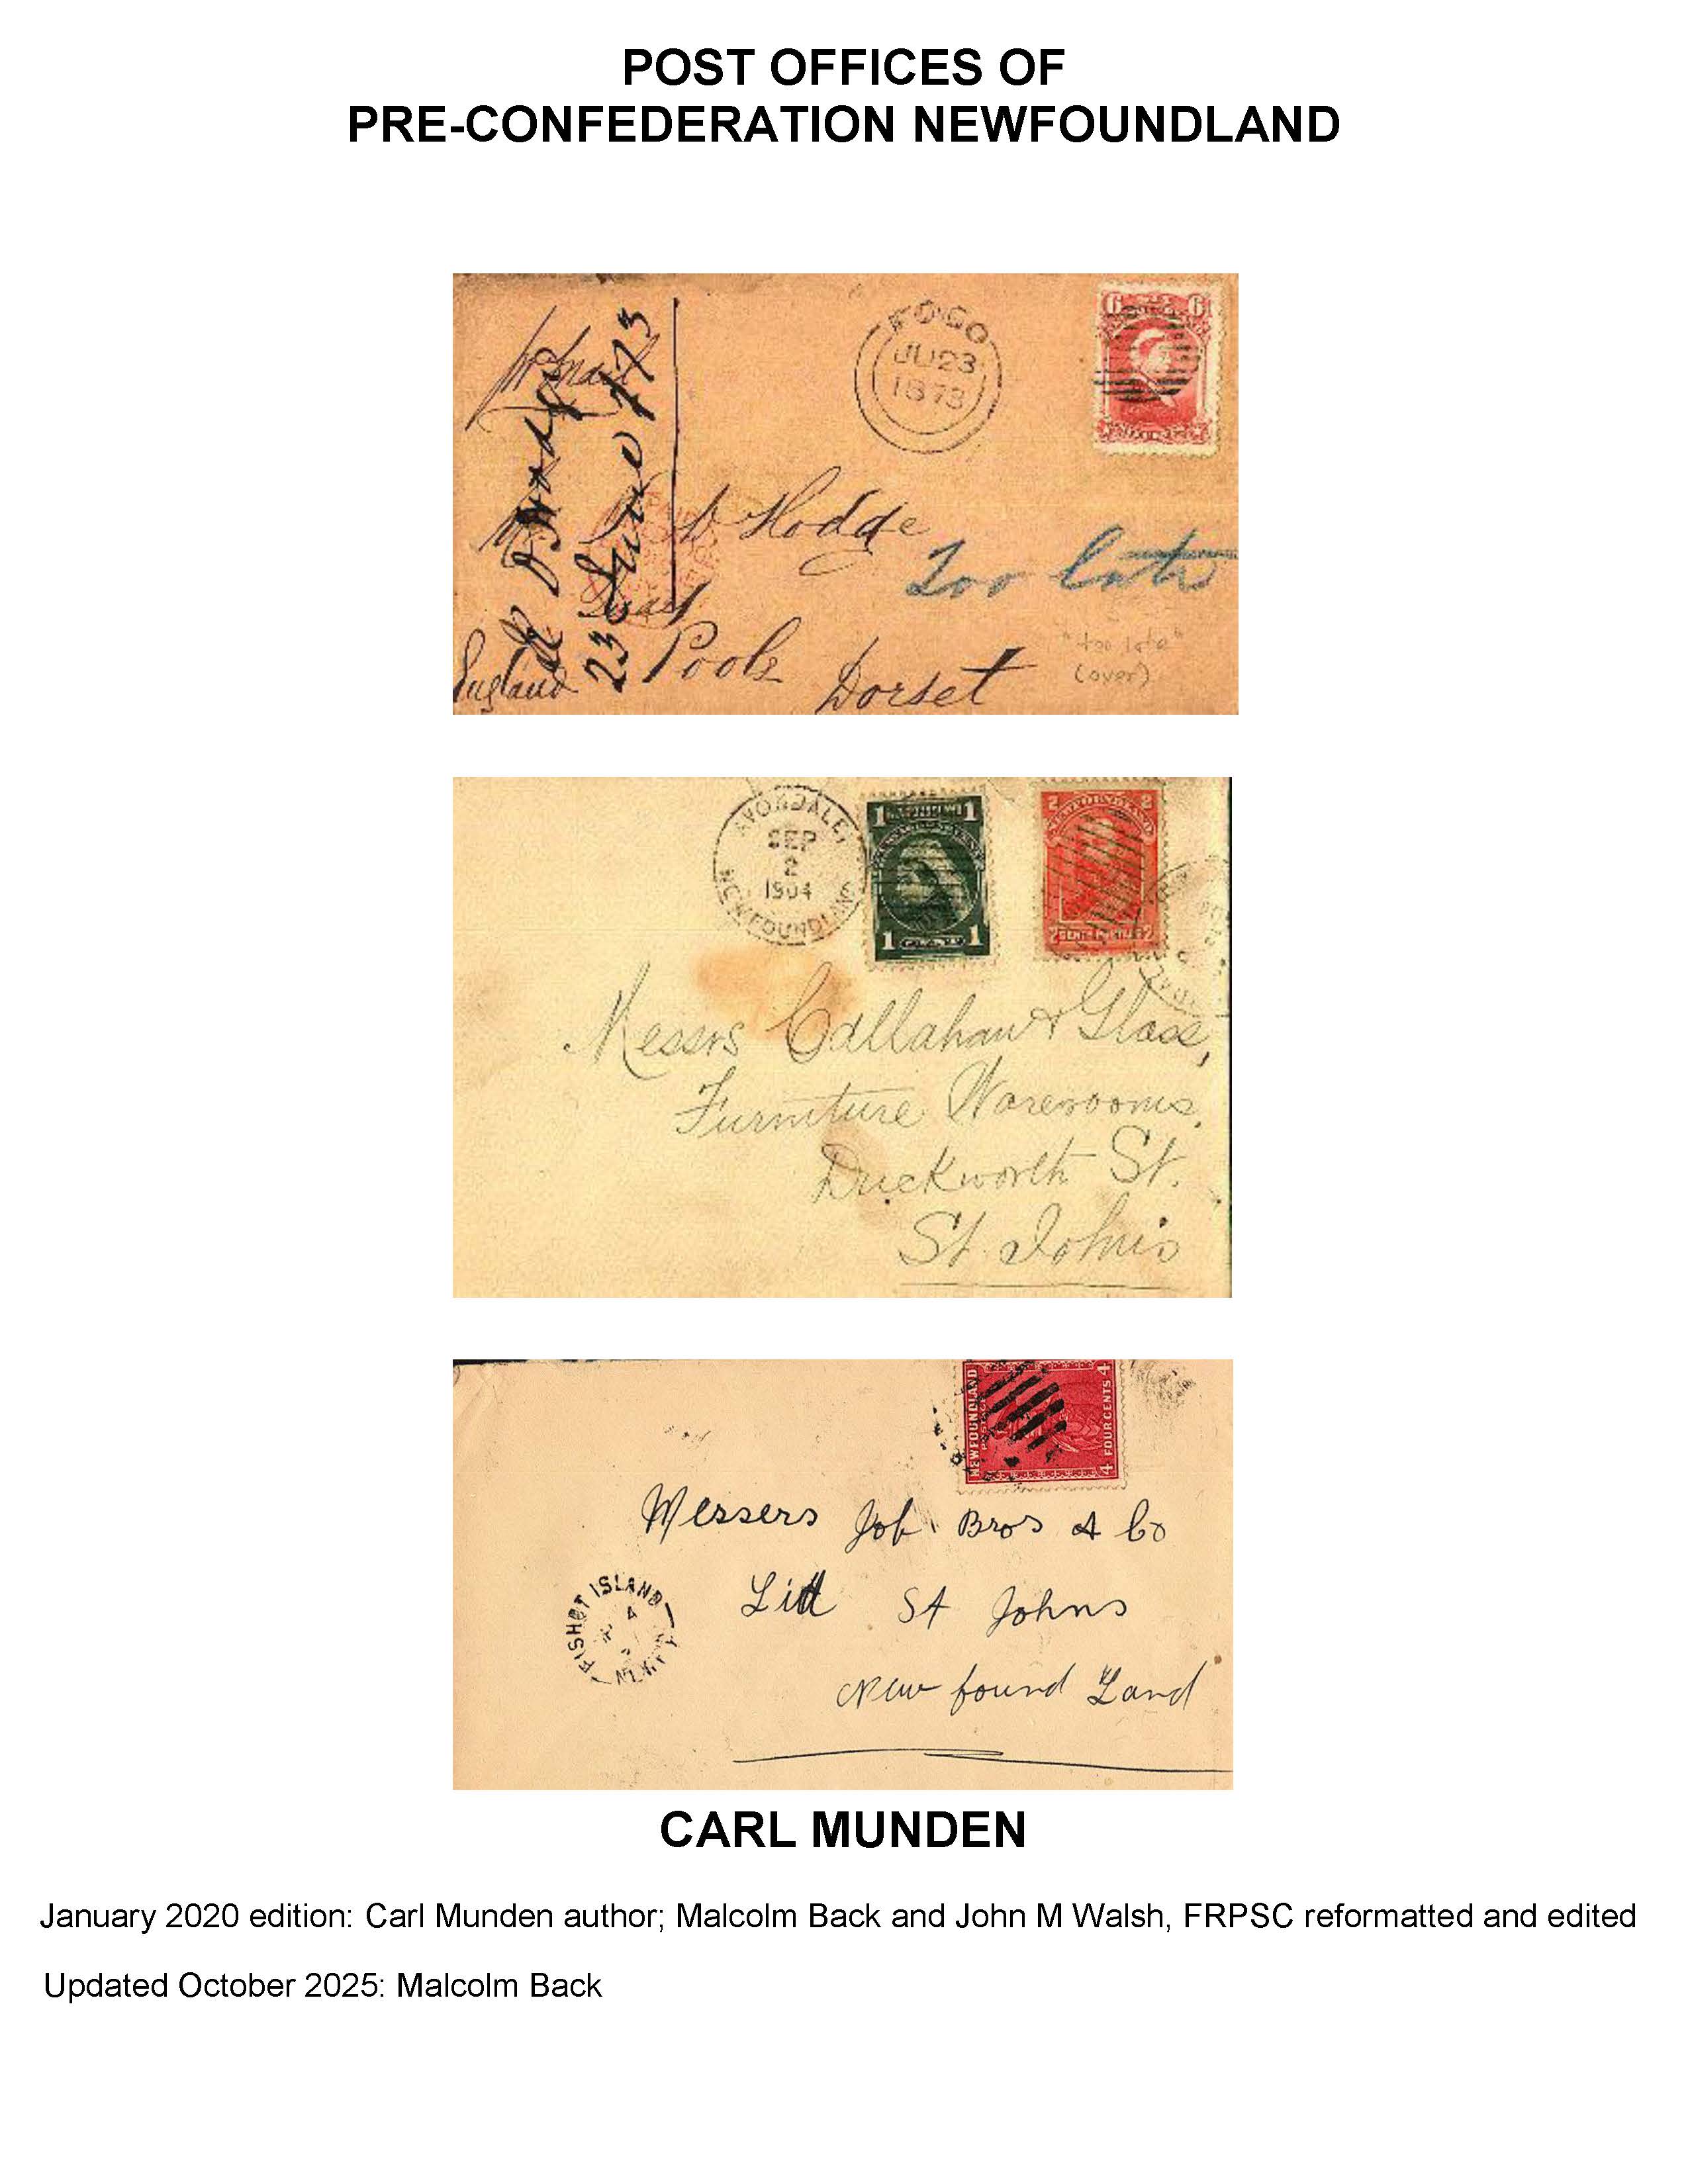 POST OFFICES OF
PRE-CONFEDERATION NEWFOUNDLAND
FOGO
JU 23
1873
6 6
23 June 1873
Hodge
Too late
"too late"
(over)
Poole
Dorset
England
AVONDALE,
SEP
2
1904
NEWFOUNDLAND
1 1
1 1
2 2
2 CENTS 2
Messrs Callahan & Glass,
Furniture Warerooms,
Duckworth St.
St. John's
NEWFOUNDLAND
4 FOUR CENTS 4
Messers Job Bros & Co
Ltd St Johns
New found Land
FISHOT ISLAND
4
CARL MUNDEN
January 2020 edition: Carl Munden author; Malcolm Back and John M Walsh, FRPSC reformatted and edited
Updated October 2025: Malcolm Back